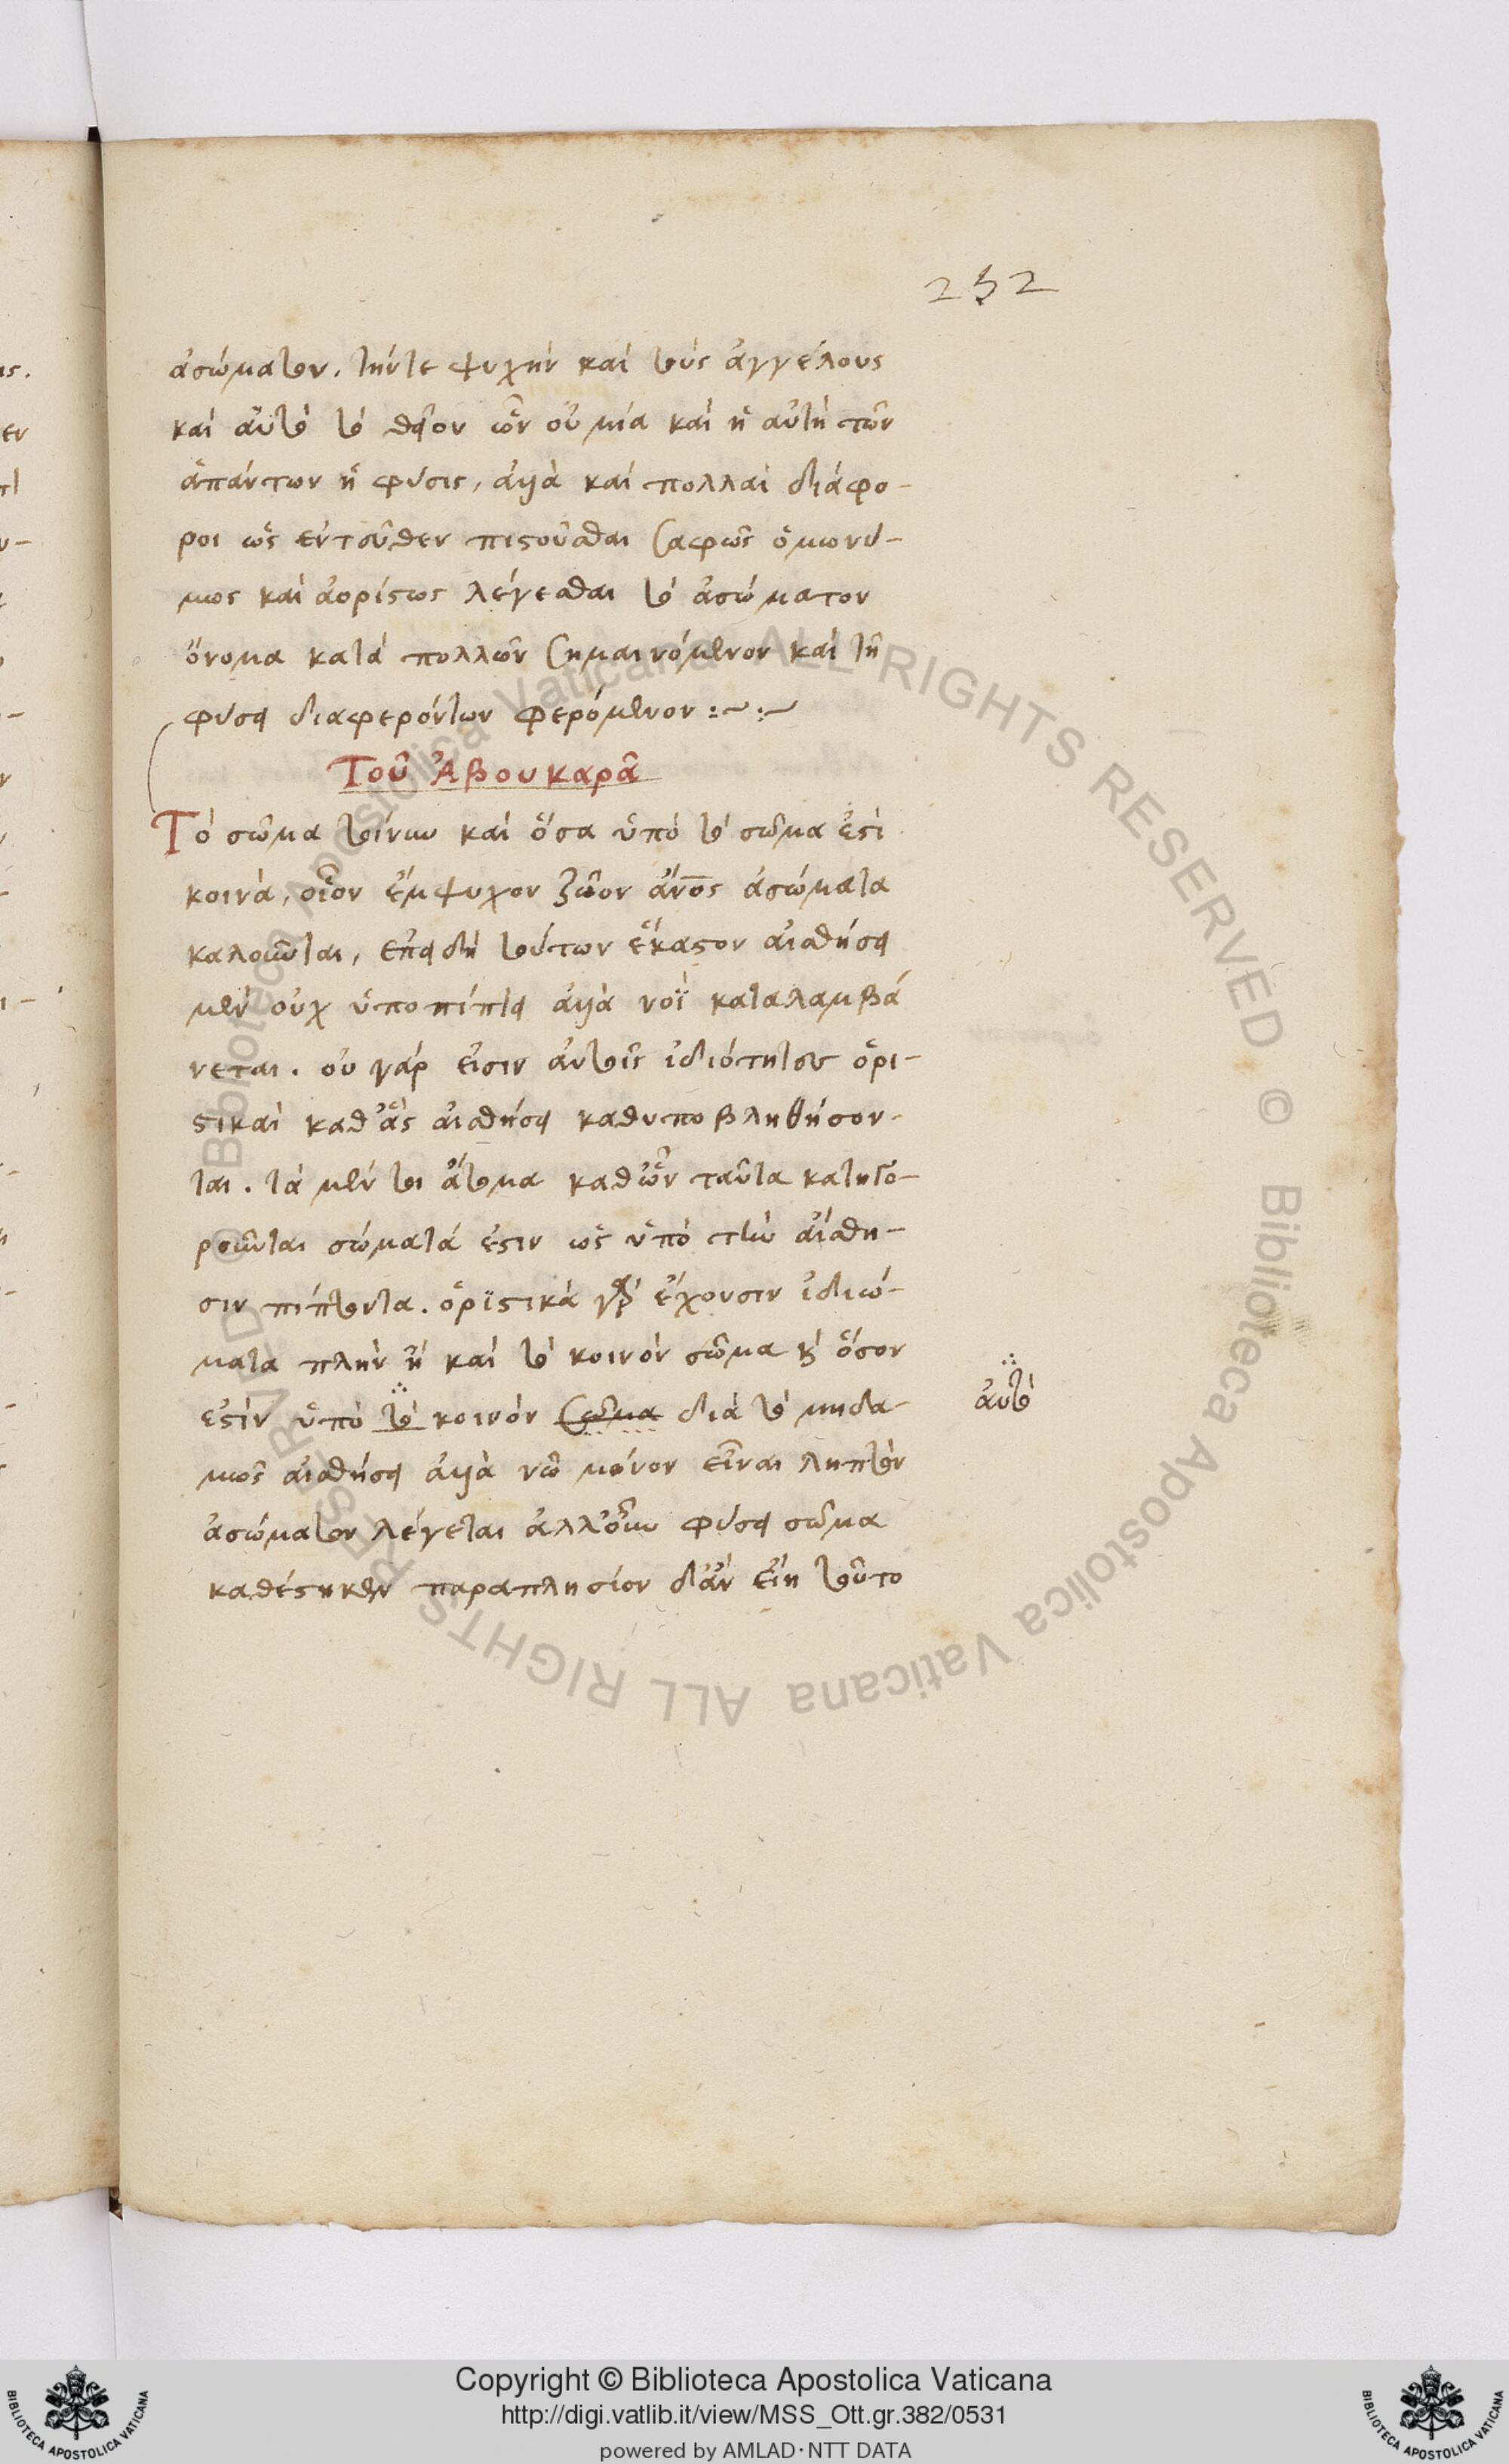 252
ἀσώματον. τήντε ψυχὴν καὶ τοὺς ἀγγέλους
καὶ αὐτὸ τὸ θεῖον ὧν οὐ μία καὶ ἡ αὐτὴ τῶν
ἁπάντων ἡ φύσις, ἀλλὰ καὶ πολλαὶ διάφο-
ροι ὡς εντοῦθεν πιστοῦσθαι σαφῶς ὁμωνύ-
μως καὶ ἀορίστως λέγεσθαι τὸ ἀσώματον
ὄνομα κατὰ πολλῶν σημαινόμενον καὶ τῆ
φύσει διαφερόντων φερόμενον :~ :~
Τοῦ Ἀβουκαρᾶ
Τὸ σῶμα τοίνυν καὶ ὅσα ὑπὸ τὸ σῶμα ἐστὶ
κοινὰ, οἷον ἔμψυχον ζῶον ἄνος ἀσώματα
καλοῦνται, ἐπειδὴ τούτων ἕκαστον αἰσθήσει
μὲν οὐχ ὑποπίπτει ἀλλὰ νοῒ καταλαμβά
νεται. οὐ γάρ εἰσιν αὐτοῖς ἰδιότητες ὁρι-
στικαὶ καθ' ἃς αἰσθήσει καθυποβληθήσον-
ται. τὰ μέν τοι ἄτομα καθ' ὧν ταῦτα κατηγο-
ροῦνται σώματά ἐστιν ὡς ὑπὸ τὴν αἴσθη-
σιν πίπτοντα. ὁρϊστικὰ γὰρ ἔχουσιν ἰδιώ-
ματα πλὴν ἢ καὶ τὸ κοινὸν σῶμα καὶ ὅσον
εστὶν ὑπὸ τὸ κοινὸν σῶμα διὰ τὸ μηδα-
αὐτὸ
μῶς αἰσθήσει ἀλλὰ νῶ μόνον εἶναι ληπτὸν
ἀσώματον λέγεται ἀλλ' οὖν φύσει σῶμα
καθέστηκεν παραπλησίον δ' ἂν εἴη τοῦτο
Copyright © Biblioteca Apostolica Vaticana
http://digi.vatlib.it/view/MSS_Ott.gr.382/0531
powered by AMLAD·NTT DATA